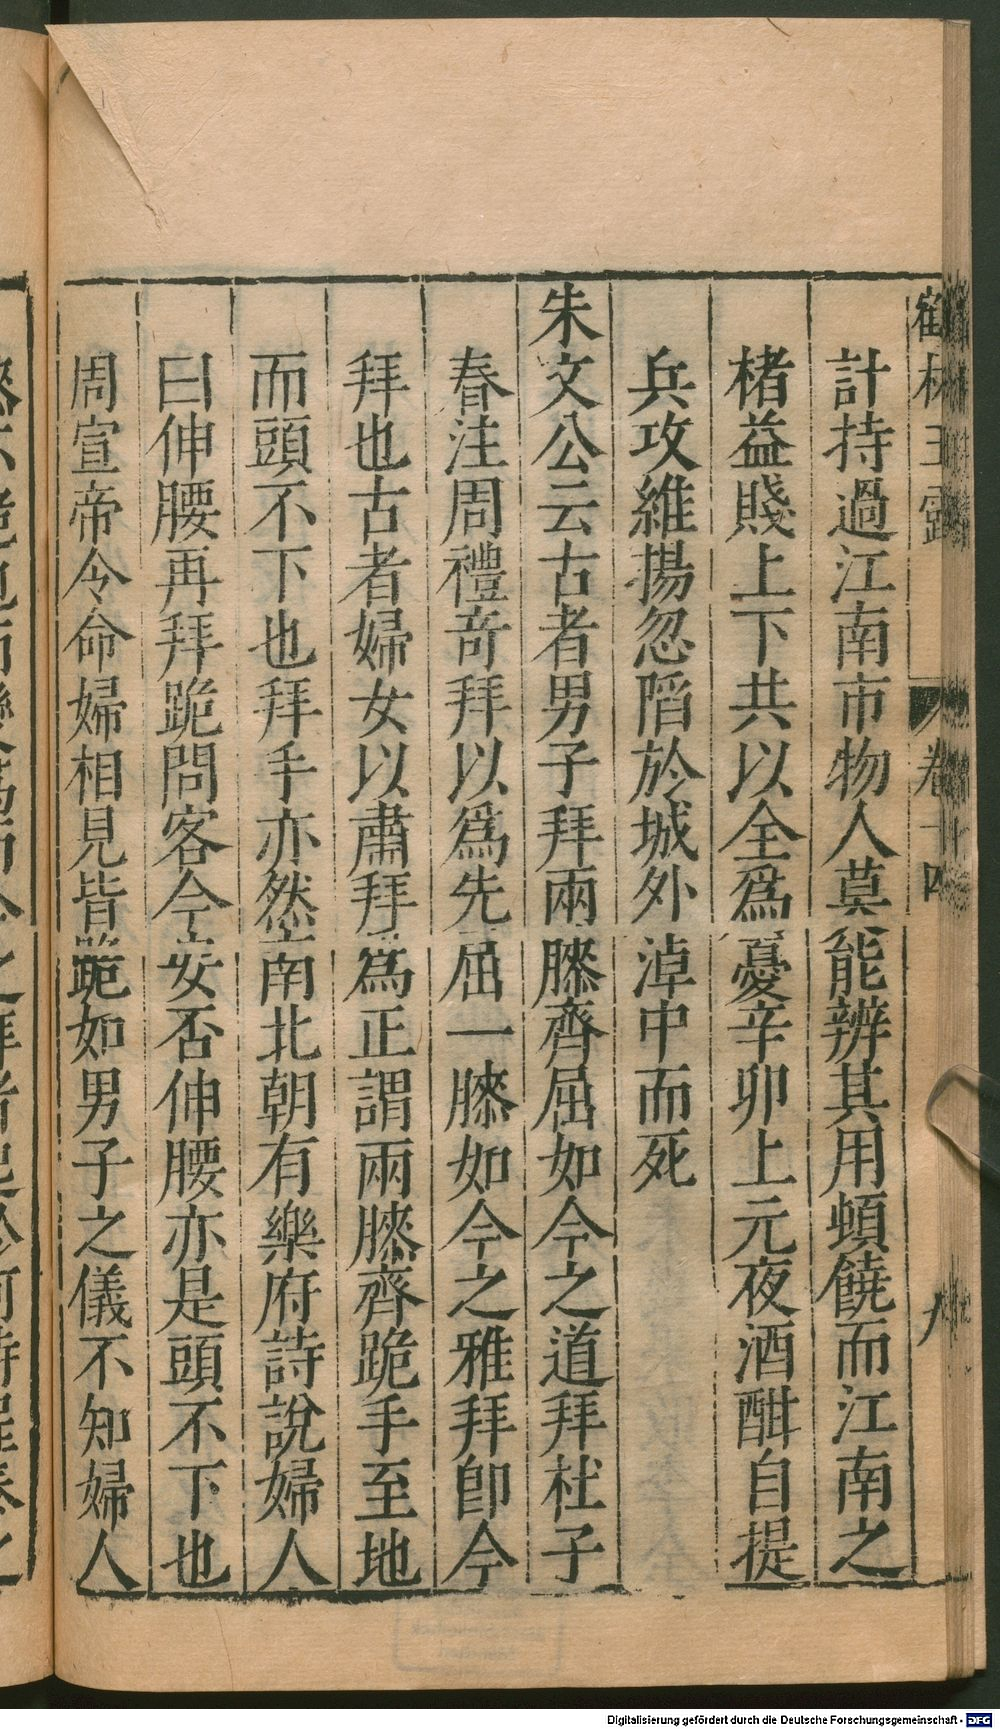 計持過江南市物人莫能辨其用頓饒而江南之
楮益賤上下共以全爲憂辛卯上元夜酒酣自提
兵攻維揚忽陷於城外淖中而死
朱文公云古者男子拜兩膝齊屈如今之道拜杜子
春注周禮奇拜以爲先屈一膝如今之雅拜卽今
拜也古者婦女以肅拜爲正謂兩膝齊跪手至地
而頭不下也拜手亦然南北朝有樂府詩說婦人
曰伸腰再拜跪問客今安否伸腰亦是頭不下也
周宣帝令命婦相見皆跪如男子之儀不知婦人
卷十四
九
Digitalisierung gefördert durch die Deutsche Forschungsgemeinschaft - DFG